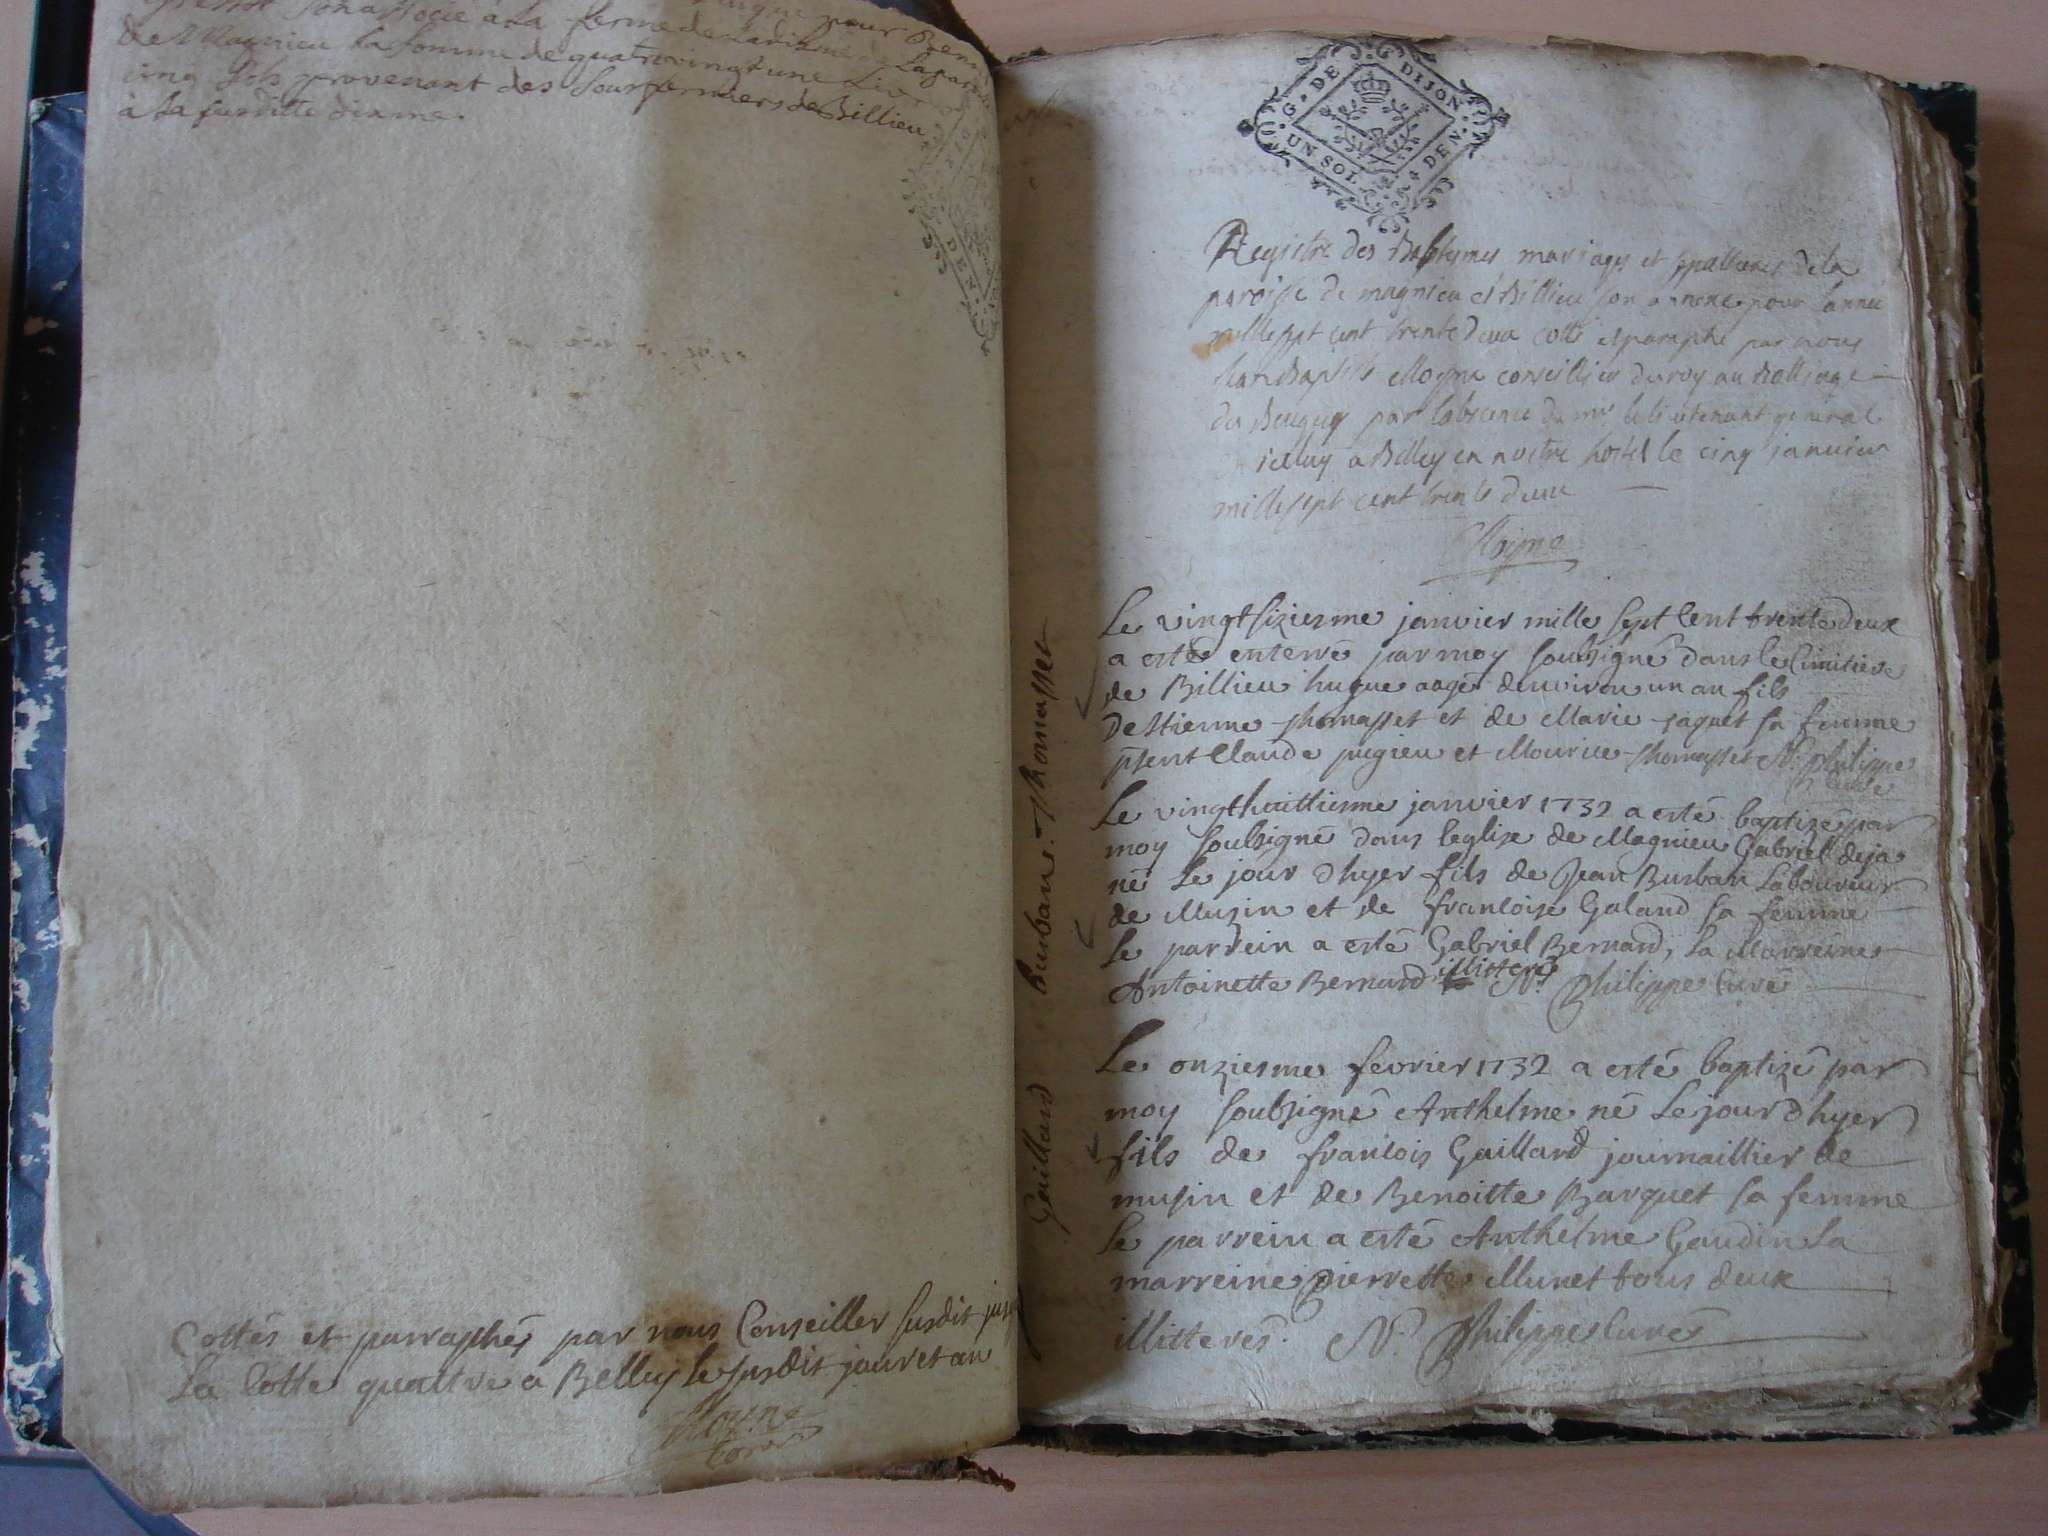 son associé à la ferme de
de Magnieu la somme de quatrevingt une Livre
cinq sols provenant des Sousfermiers de Billieu
à la susditte dixme.
Cottés et parraphés par nous Conseiller susdit
La Cotte quattre a Belley le susdit jour et an
Moyne
G. DE DIJON
UN SOL 4 DEN.
Registre des Baptemes mariages et sepultures de la
paroisse de magnieu et Billieu son annexe pour l'année
mille sept cent trente deux cotté et paraphé par nous
Jean Baptiste Moyne conseillier du roy au Balliage
du Beugey par labsence du mr le lieutenant general
en iceluy a Belley en nostre hostel le cinq janvier
mille sept cent trente deux
Moyne
Thomasset
burban
Gaillard
Le vingtsiziesme janvier mille sept cent trente deux
a esté enterré par moy soubsigné dans le cimitiere
de Billieu hugue aagé denviron un an fils
Destienne Thomasset et de Marie jaquet sa femme
pnsent Claude pugieu et Mourice Thomasset N. philippe
Curé
Le vingthuittiesme janvier 1732 a esté baptizé par
moy soubsigné dans leglise de Magnieu Gabriel deja
né le jour dhyer fils de Jean Burban Laboureur
de Musin et de francoise Galand sa femme
Le parrein a esté Gabriel Bernard, la Marreine
Antoinette Bernard illitterés N. Philippe Curé
Le onziesme février 1732 a esté baptizé par
moy soubsigné Anthelme né le jour dhyer
fils de francois Gaillard journaillier de
musin et de Benoitte Barquet sa femme
le parrein a esté Anthelme Gaudin la
marreine pierrette Munet tous deux
illitterés. N. Philippe Curé